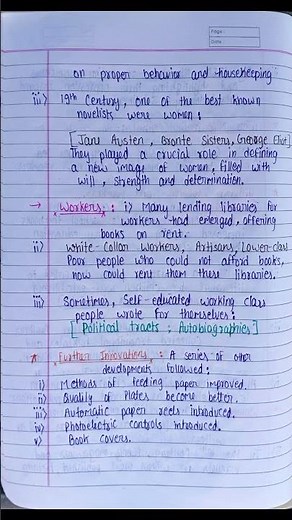 Page:
Date:
on proper behavior and housekeeping
iii) 19th Century, one of the best known
novelists were women:
[Jane Austen, Bronte Sisters, George Eliot]
They played a crucial role in defining
a new image of women, filled with
will, strength and determination.
→ Workers: i) Many lending libraries for
workers had emerged, offering
books on rent.
ii) White-Collar Workers, Artisans, Lower-class
Poor people who could not afford books,
now could rent them these libraries.
iii) Sometimes, Self-educated working class
people wrote for themselves:
[Political tracts; Autobiographies]
* Further Innovations: A series of other
developments followed:
i) Methods of feeding paper improved.
ii) Quality of Plates become better.
iii) Automatic paper reels introduced.
iv) Photoelectric controls introduced.
v) Book covers.